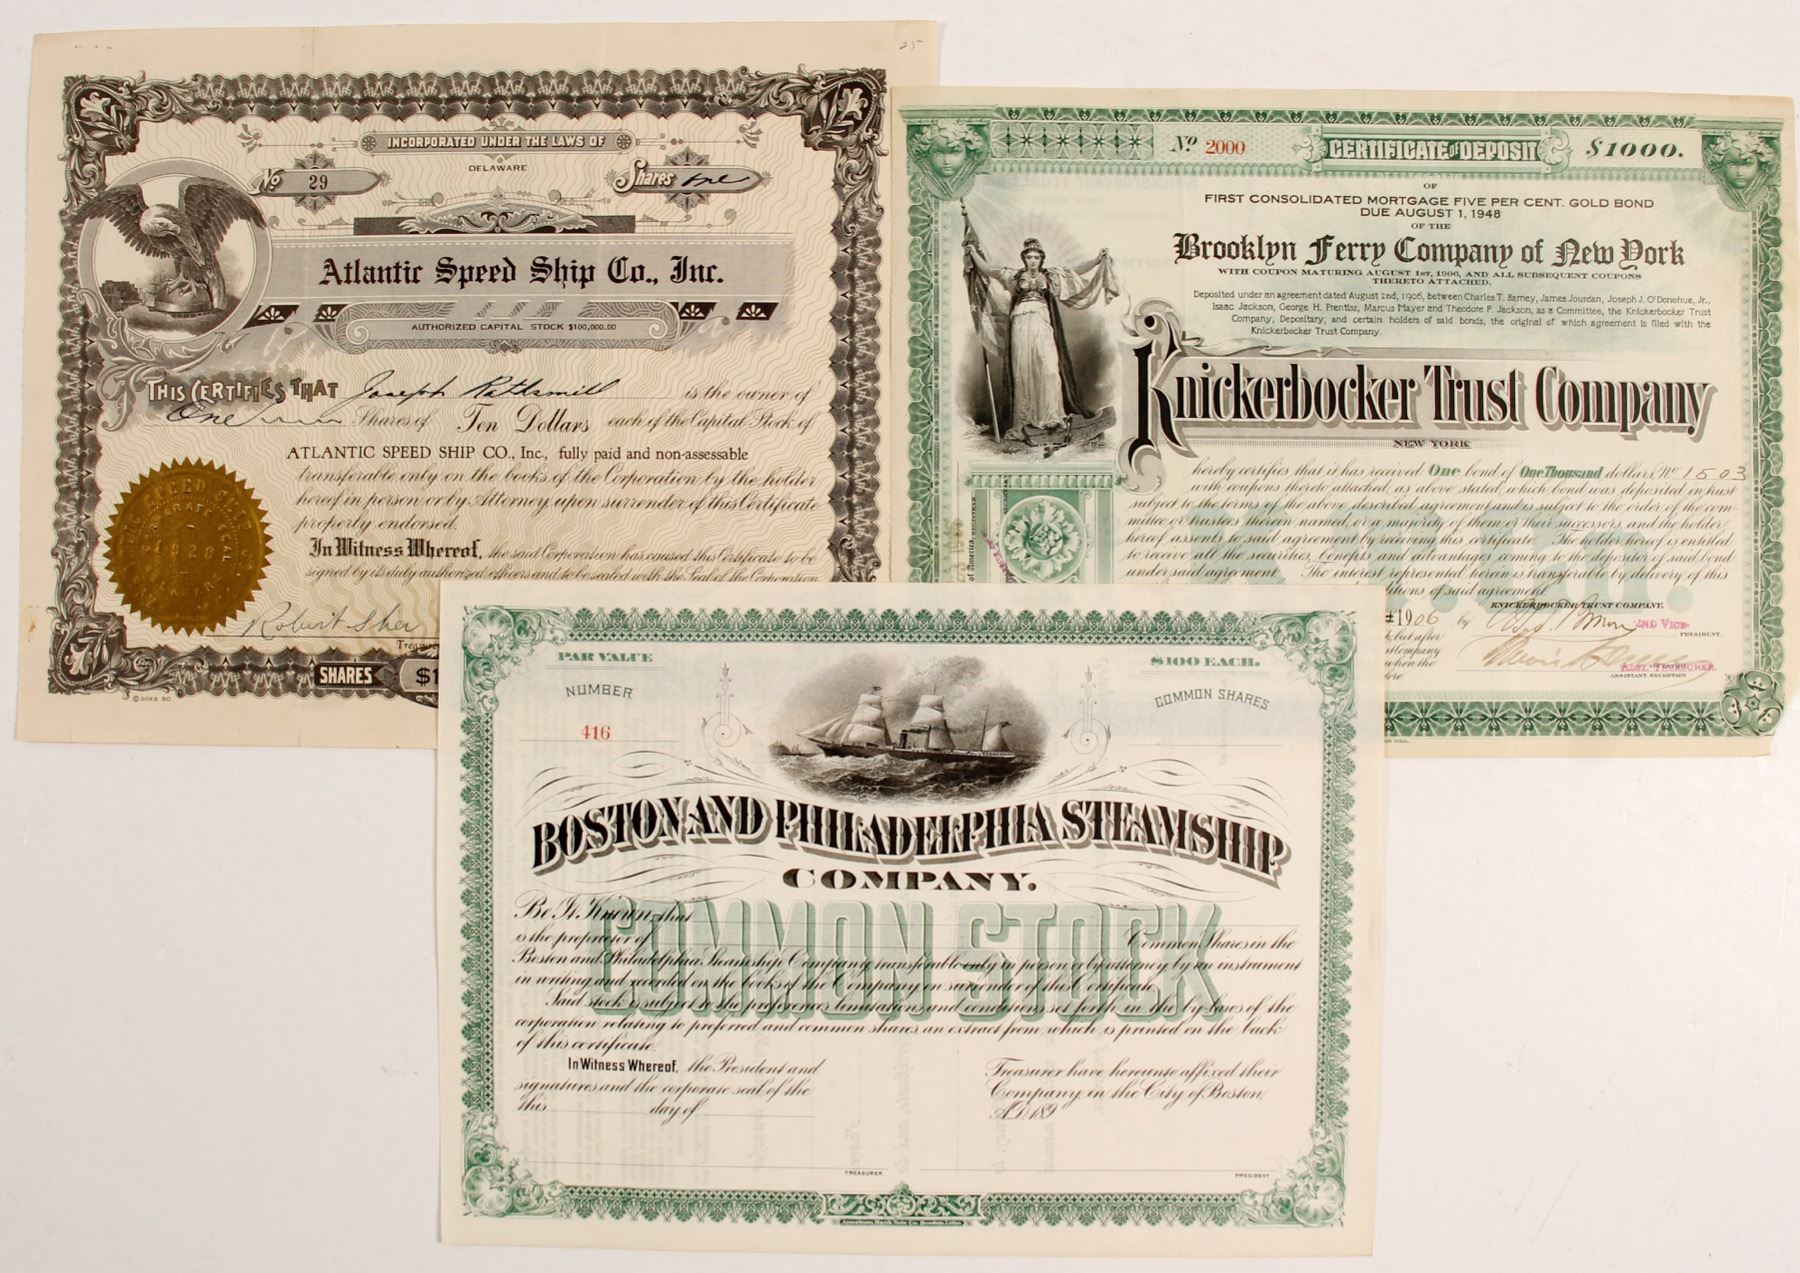 25
INCORPORATED UNDER THE LAWS OF
DELAWARE
No 29
Shares one
Atlantic Speed Ship Co., Inc.
AUTHORIZED CAPITAL STOCK $100,000.00
THIS CERTIFIES THAT Joseph is the owner of
One Shares of Ten Dollars each of the Capital Stock of
ATLANTIC SPEED SHIP CO., Inc., fully paid and non-assessable
transferable only on the books of the Corporation by the holder
hereof in person or by Attorney upon surrender of this Certificate
properly endorsed.
In Witness Whereof, the said Corporation has caused this Certificate to be
signed by its duly authorized officers and to be sealed with the Seal of the Corporation
Robert Sher
SHARES $1
© GOES 50
No 2000
CERTIFICATE OF DEPOSIT
$1000.
OF
FIRST CONSOLIDATED MORTGAGE FIVE PER CENT. GOLD BOND
DUE AUGUST 1, 1948
OF THE
Brooklyn Ferry Company of New York
WITH COUPON MATURING AUGUST 1ST, 1906, AND ALL SUBSEQUENT COUPONS
THERETO ATTACHED.
Deposited under an agreement dated August 2nd, 1906, between Charles T. Barney, James Jourdan, Joseph J. O'Donohue, Jr.,
Isaac Jackson, George H. Prentiss, Marcus Mayer and Theodore F. Jackson, as a Committee, the Knickerbocker Trust
Company, Depositary, and certain holders of said bonds, the original of which agreement is filed with the
Knickerbocker Trust Company.
Knickerbocker Trust Company
NEW YORK
hereby certifies that it has received One bond of One Thousand dollars, No 1503
with coupons thereto attached, as above stated, which bond was deposited in trust
subject to the terms of the above described agreement and is subject to the order of the com-
mittee or trustees therein named, or a majority of them or their successors, and the holder
hereof assents to said agreement by receiving this certificate. The holder hereof is entitled
to receive all the securities, benefits and advantages coming to the depositor of said bond
under said agreement. The interest represented herein is transferable by delivery of this
ditions of said agreement.
KNICKERBOCKER TRUST COMPANY,
1906 by
2ND VICE- PRESIDENT.
, but after
Company
when the
ASST. TREASURER
ASSISTANT SECRETARY
PAR VALUE
$100 EACH.
NUMBER
COMMON SHARES
416
BOSTON AND PHILADELPHIA STEAMSHIP
COMPANY.
COMMON STOCK
Be It Known that
is the proprietor of Common Shares in the
Boston and Philadelphia Steamship Company transferable only in person or by attorney by an instrument
in writing and recorded on the books of the Company on surrender of this Certificate.
Said stock is subject to the preferences limitations and conditions set forth in the by-laws of the
corporation relating to preferred and common shares, an extract from which is printed on the back
of this certificate.
In Witness Whereof, the President and Treasurer have hereunto affixed their
signatures and the corporate seal of the Company, in the City of Boston,
this day of A.D. 189
TREASURER
PRESIDENT
American Bank Note Co. Boston